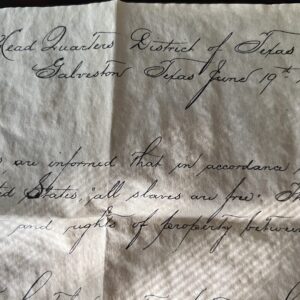 Head Quarters District of Texas
Galveston Texas June 19th
are informed that in accordance
States, "all slaves are free." Th
and rights of property between